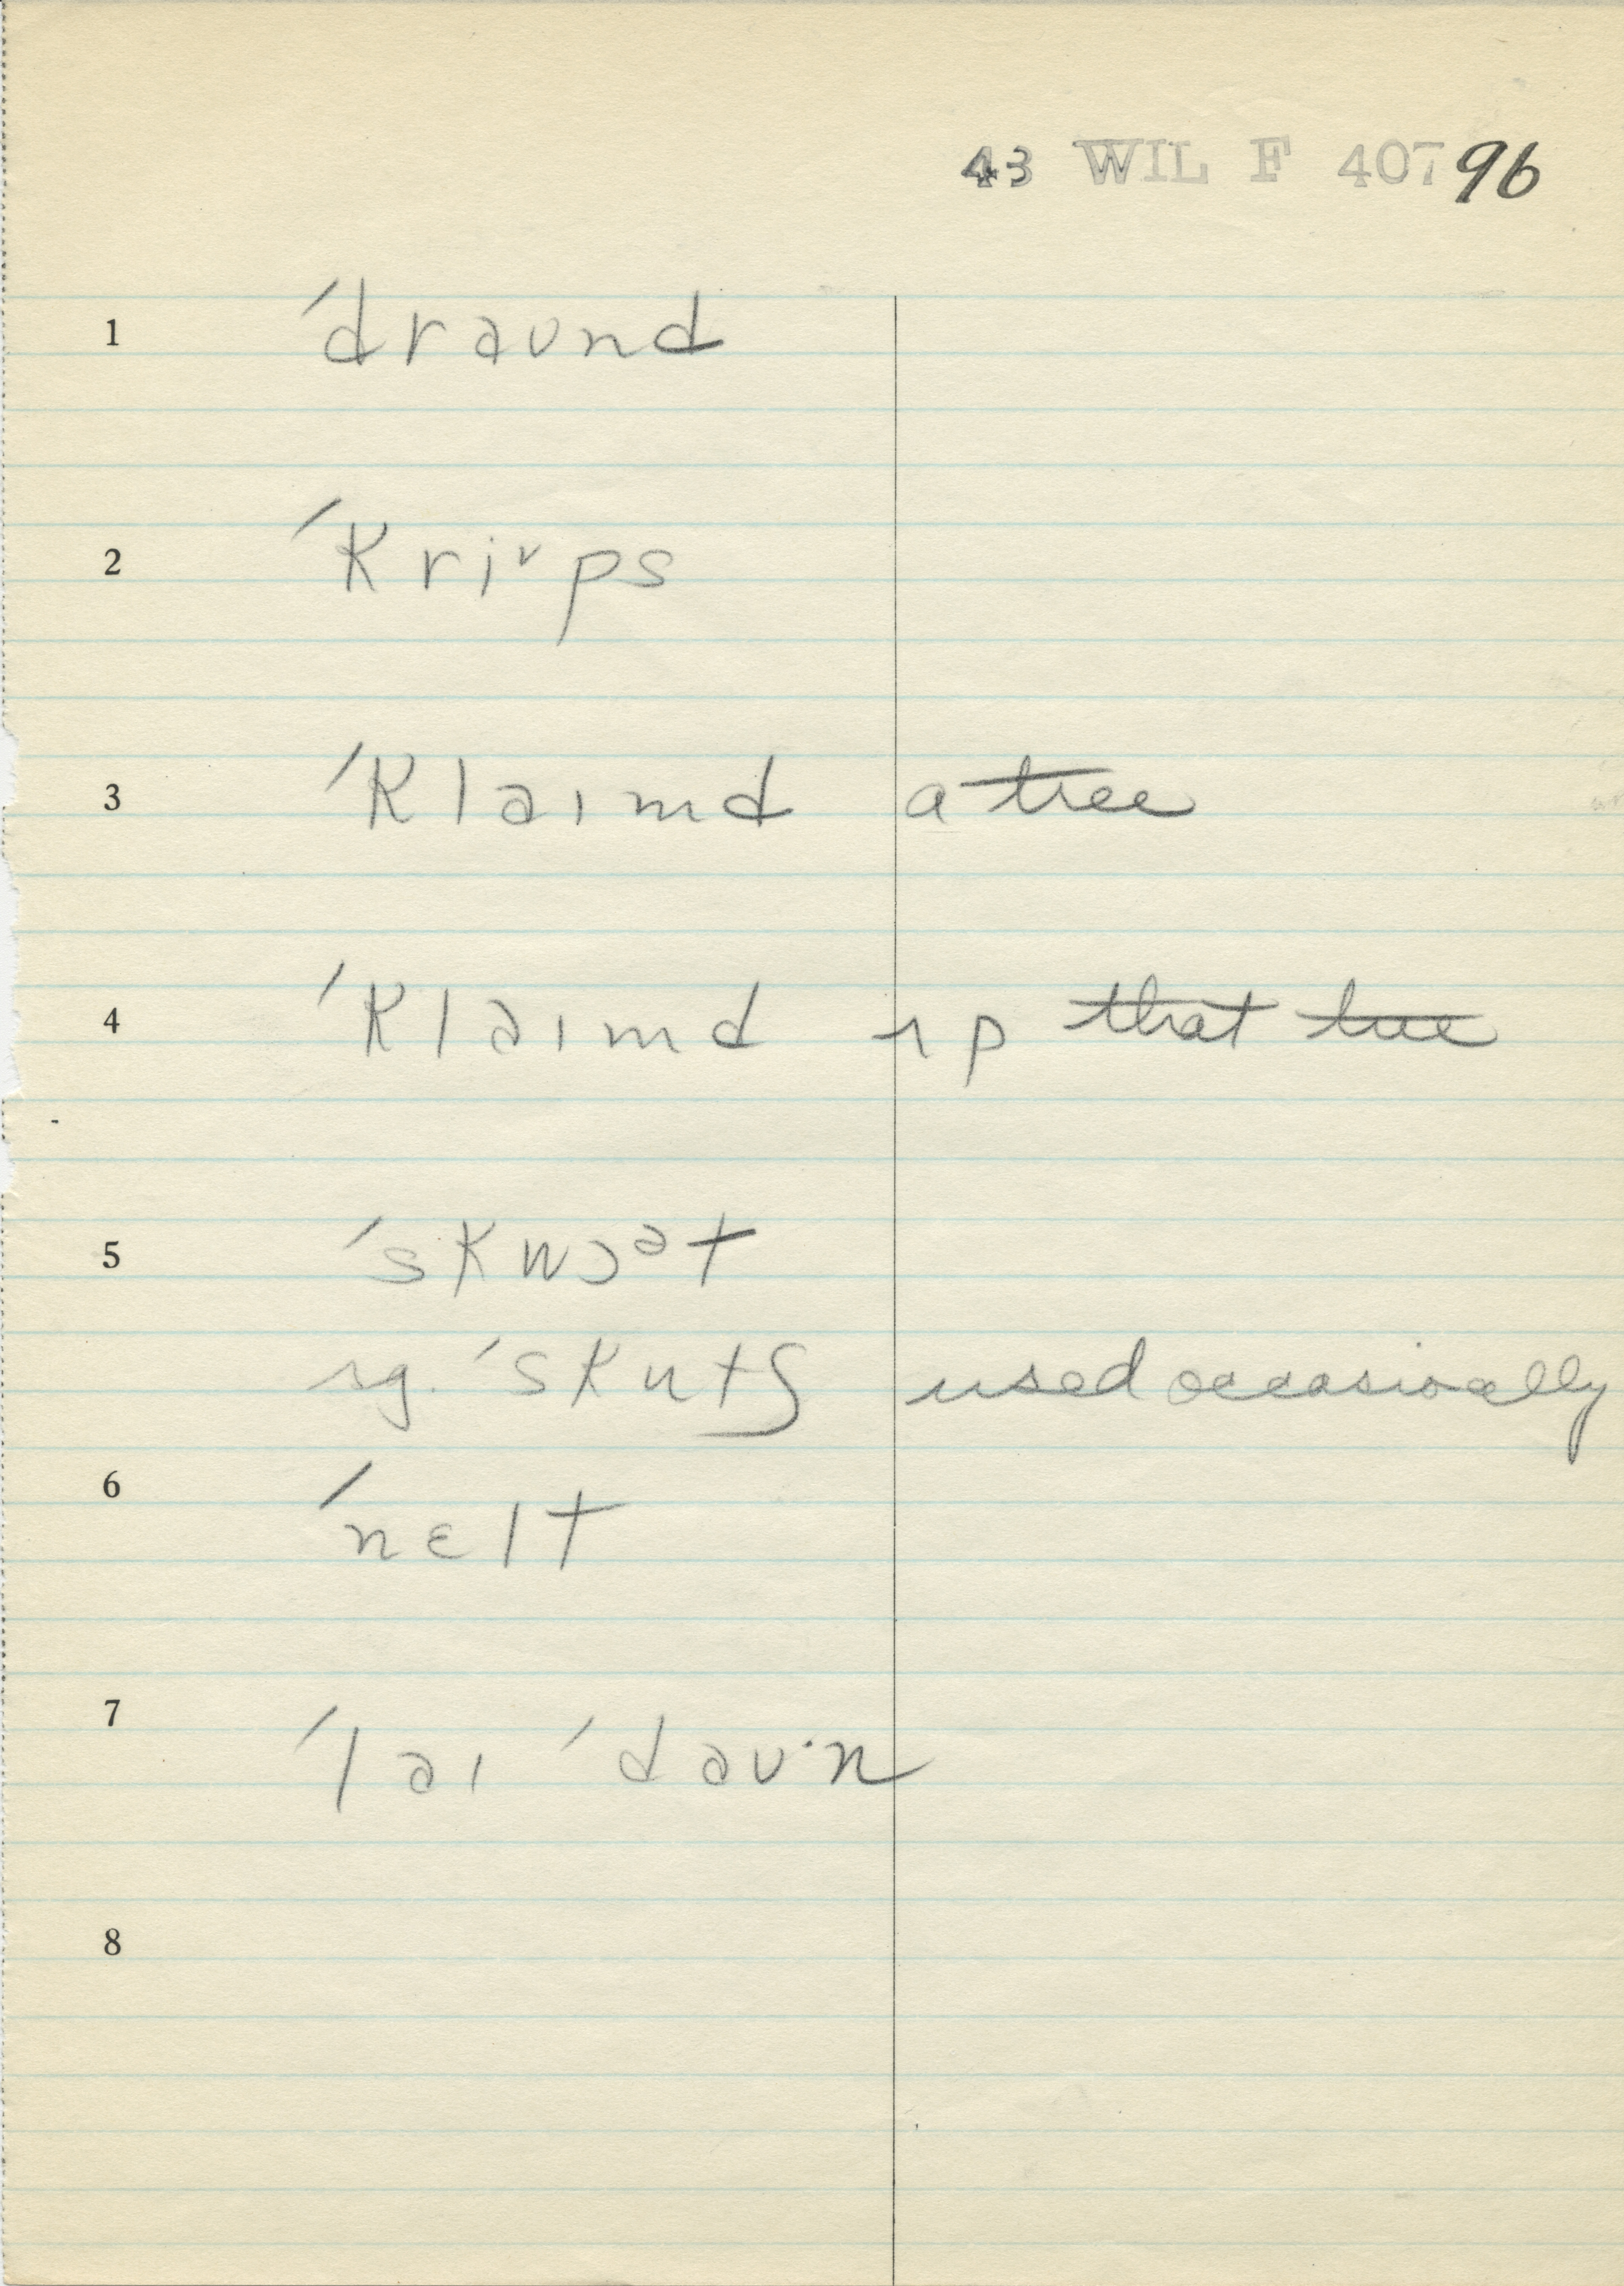 43 WIL F 407 96
1 ˈdraʊnd
2 ˈkriᵛps
3 ˈklaɪmd a tree
4 ˈklaɪmd ʌp that tree
5 ˈskwɔᵊt
sg. ˈskutʃ used occasionally
6 ˈnɛlt
7 ˈlaɪ ˈdaʊ·n
8